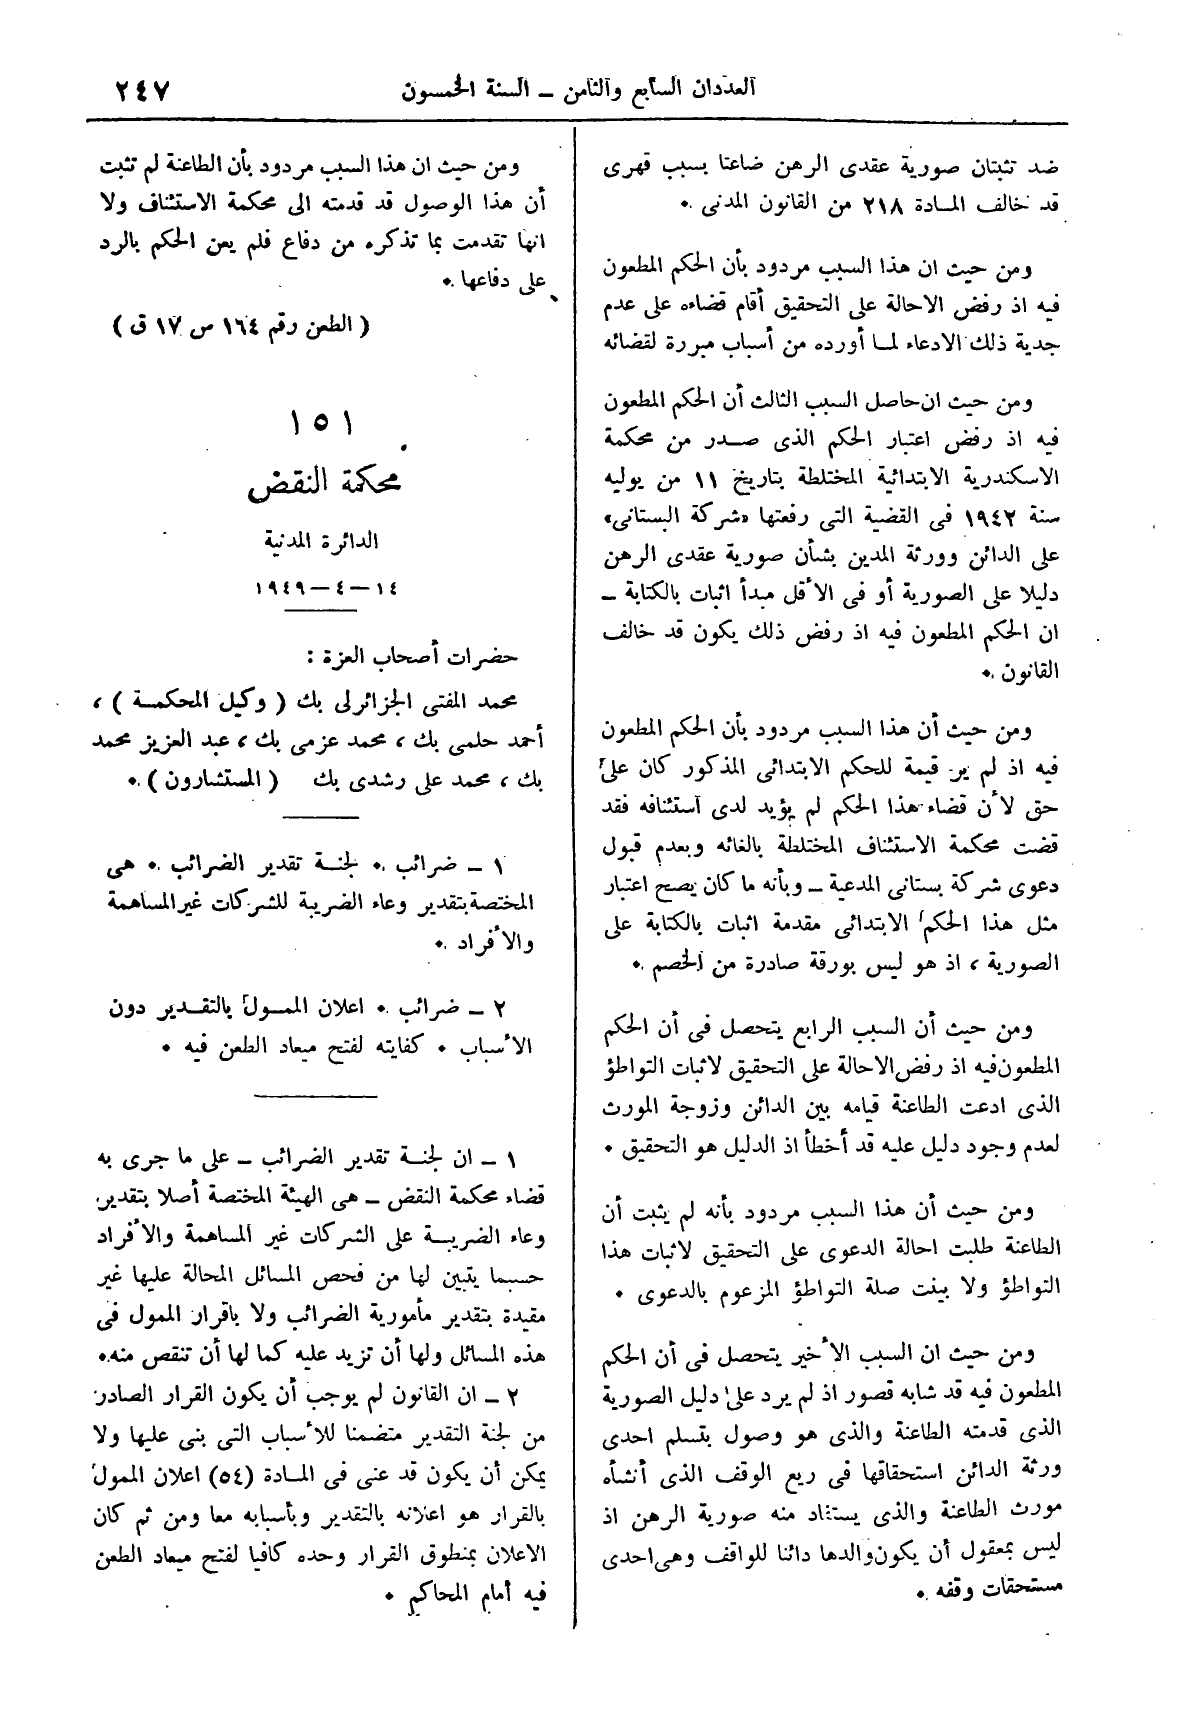 العددان السابع والثامن – السنة الخمسون
٢٤٧
ضد تثبتان صورية عقدى الرهن ضاعتا بسبب قهرى
قد خالف المادة ٢١٨ من القانون المدنى .
ومن حيث ان هذا السبب مردود بأن الحكم المطعون
فيه اذ رفض الاحالة على التحقيق أقام قضاءه على عدم
جدية ذلك الادعاء لما أورده من أسباب مبررة لقضائه
ومن حيث ان حاصل السبب الثالث أن الحكم المطعون
فيه اذ رفض اعتبار الحكم الذى صدر من محكمة
الاسكندرية الابتدائية المختلطة بتاريخ ١١ من يوليه
سنة ١٩٤٢ فى القضية التى رفعتها «شركة البستانى»
على الدائن وورثة المدين بشأن صورية عقدى الرهن
دليلا على الصورية أو فى الأقل مبدأ اثبات بالكتابة –
ان الحكم المطعون فيه اذ رفض ذلك يكون قد خالف
القانون .
ومن حيث أن هذا السبب مردود بأن الحكم المطعون
فيه اذ لم ير قيمة للحكم الابتدائى المذكور كان على
حق لأن قضاء هذا الحكم لم يؤيد لدى استئنافه فقد
قضت محكمة الاستئناف المختلطة بالغائه وبعدم قبول
دعوى شركة بستانى المدعية – وبأنه ما كان يصح اعتبار
مثل هذا الحكم الابتدائى مقدمة اثبات بالكتابة على
الصورية ، اذ هو ليس بورقة صادرة من الخصم .
ومن حيث أن السبب الرابع يتحصل فى أن الحكم
المطعون فيه اذ رفض الاحالة على التحقيق لاثبات التواطؤ
الذى ادعت الطاعنة قيامه بين الدائن وزوجة المورث
لعدم وجود دليل عليه قد أخطأ اذ الدليل هو التحقيق .
ومن حيث أن هذا السبب مردود بأنه لم يثبت أن
الطاعنة طلبت احالة الدعوى على التحقيق لاثبات هذا
التواطؤ ولا بينت صلة التواطؤ المزعوم بالدعوى .
ومن حيث ان السبب الأخير يتحصل فى أن الحكم
المطعون فيه قد شابه قصور اذ لم يرد على دليل الصورية
الذى قدمته الطاعنة والذى هو وصول بتسلم احدى
ورثة الدائن استحقاقها فى ريع الوقف الذى أنشأه
مورث الطاعنة والذى يستفاد منه صورية الرهن اذ
ليس بمعقول أن يكون والدها دائنا للواقف وهى احدى
مستحقات وقفه .
ومن حيث ان هذا السبب مردود بأن الطاعنة لم تثبت
أن هذا الوصول قد قدمته الى محكمة الاستئناف ولا
انها تقدمت بما تذكره من دفاع فلم يعن الحكم بالرد
على دفاعها .
( الطعن رقم ١٦٤ ص ١٧ ق )
١٥١
محكمة النقض
الدائرة المدنية
١٤–٤–١٩٤٩
حضرات أصحاب العزة :
محمد المفتى الجزائرلى بك ( وكيل المحكمة ) ،
أحمد حلمى بك ، محمد عزمى بك ، عبد العزيز محمد
بك ، محمد على رشدى بك ( المستشارون ) .
١ – ضرائب . لجنة تقدير الضرائب . هى
المختصة بتقدير وعاء الضريبة للشركات غير المساهمة
والأفراد .
٢ – ضرائب . اعلان الممول بالتقدير دون
الأسباب . كفايته لفتح ميعاد الطعن فيه .
١ – ان لجنة تقدير الضرائب – على ما جرى به
قضاء محكمة النقض – هى الهيئة المختصة أصلا بتقدير
وعاء الضريبة على الشركات غير المساهمة والأفراد
حسبما يتبين لها من فحص المسائل المحالة عليها غير
مقيدة بتقدير مأمورية الضرائب ولا باقرار الممول فى
هذه المسائل ولها أن تزيد عليه كما لها أن تنقص منه.
٢ – ان القانون لم يوجب أن يكون القرار الصادر
من لجنة التقدير متضمنا للأسباب التى بنى عليها ولا
يمكن أن يكون قد عنى فى المادة (٥٤) اعلان الممول
بالقرار هو اعلانه بالتقدير وبأسبابه معا ومن ثم كان
الاعلان بمنطوق القرار وحده كافيا لفتح ميعاد الطعن
فيه أمام المحاكم .